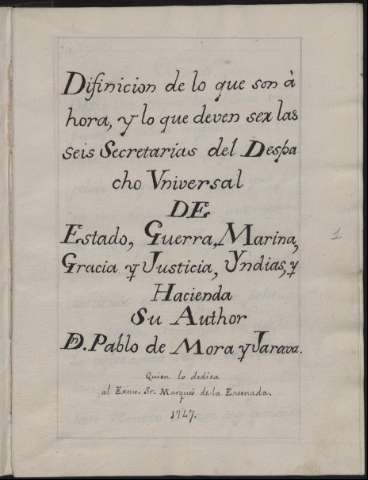 Difinicion de lo que son à
hora, y lo que deven ser las
seis Secretarias del Despa
cho Vniversal
DE
Estado, Guerra, Marina,
Gracia y Justicia, Yndias, y
Hacienda
Su Author
Dn. Pablo de Mora y Jarava.
Quien lo dedica
al Exmo. Sr. Marqués de la Ensenada.
1747.
1